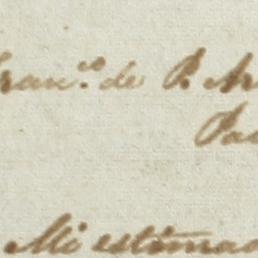 Fran.co de P. Ar
Pa
Mi estimad